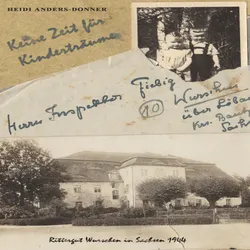 HEIDI ANDERS-DONNER
Keine Zeit für
Kinderträume
Herrn Inspektor Fiebig
10
Wurschen
über Löbau
Krs. Bautzen
Sachs
Rittergut Wurschen in Sachsen 1944